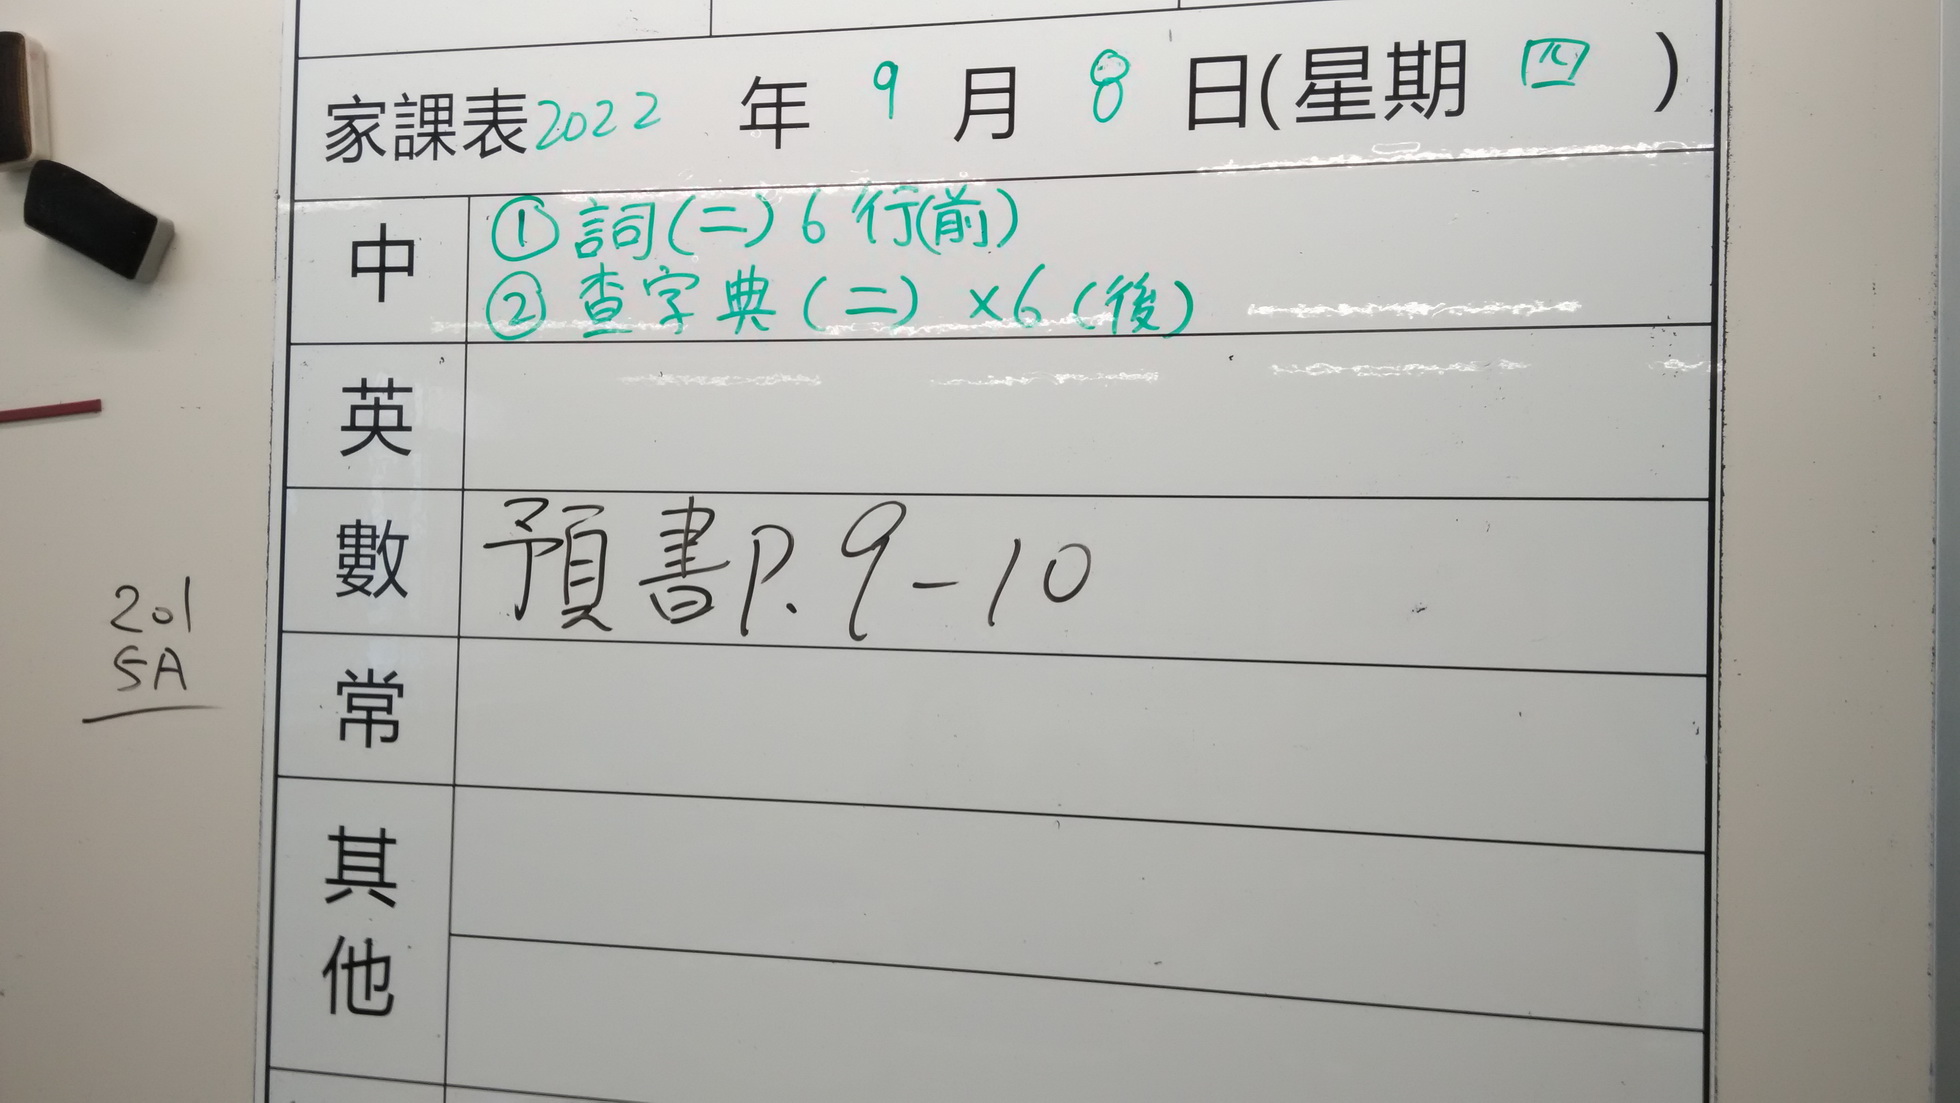 家課表2022 年 9 月 8 日(星期 四 )
中
① 詞(二) 6 行(前)
② 查字典 (二) ×6 (後)
英
數 預書P. 9-10
常
其
他
201
5A